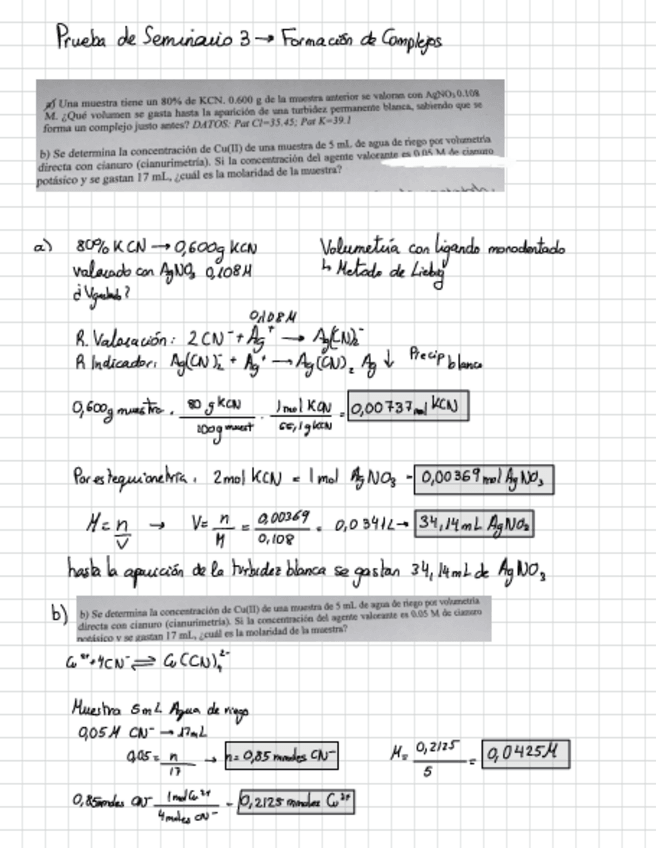 Prueba de Seminario 3 → Formación de Complejos
a) Una muestra tiene un 80% de KCN. 0.600 g de la muestra anterior se valoran con AgNO₃ 0.108
M. ¿Qué volumen se gasta hasta la aparición de una turbidez permanente blanca, sabiendo que se
forma un complejo justo antes? DATOS: Pat Cl=35.45; Pat K=39.1
b) Se determina la concentración de Cu(II) de una muestra de 5 mL de agua de riego por volumetría
directa con cianuro (cianurimetría). Si la concentración del agente valorante es 0.05 M de cianuro
potásico y se gastan 17 mL, ¿cuál es la molaridad de la muestra?
a) 80% KCN → 0,600g KCN
valorado con AgNO₃ 0,108M
¿Vgastado?
Volumetría con ligando monodentado
↳ Metodo de Liebig
0,108M
R. Valoración: 2CN⁻ + Ag⁺ → Ag(CN)₂⁻
R Indicador: Ag(CN)₂⁻ + Ag⁺ → Ag(CN)₂ Ag ↓ Precip blanco
0,600g muestra · 80 g KCN / 100g muest · 1mol KCN / 65,1g KCN = 0,00737mol KCN
Por estequiometría, 2mol KCN = 1mol AgNO₃ - 0,00369 mol AgNO₃
M = n/V → V = n/M = 0,00369/0,108 = 0,0341L → 34,14mL AgNO₃
hasta la aparición de la turbidez blanca se gastan 34,14mL de AgNO₃
b) b) Se determina la concentración de Cu(II) de una muestra de 5 mL de agua de riego por volumetría
directa con cianuro (cianurimetría). Si la concentración del agente valorante es 0.05 M de cianuro
potásico y se gastan 17 mL, ¿cuál es la molaridad de la muestra?
Cu²⁺ + 4CN⁻ ⇌ Cu(CN)₄²⁻
Muestra 5mL Agua de riego
0,05M CN⁻ → 17mL
0,05 = n/17 → n = 0,85 mmoles CN⁻
M = 0,2125/5 = 0,0425M
0,85mmoles CN⁻ 1mol Cu²⁺ / 4moles CN⁻ = 0,2125 mmoles Cu²⁺